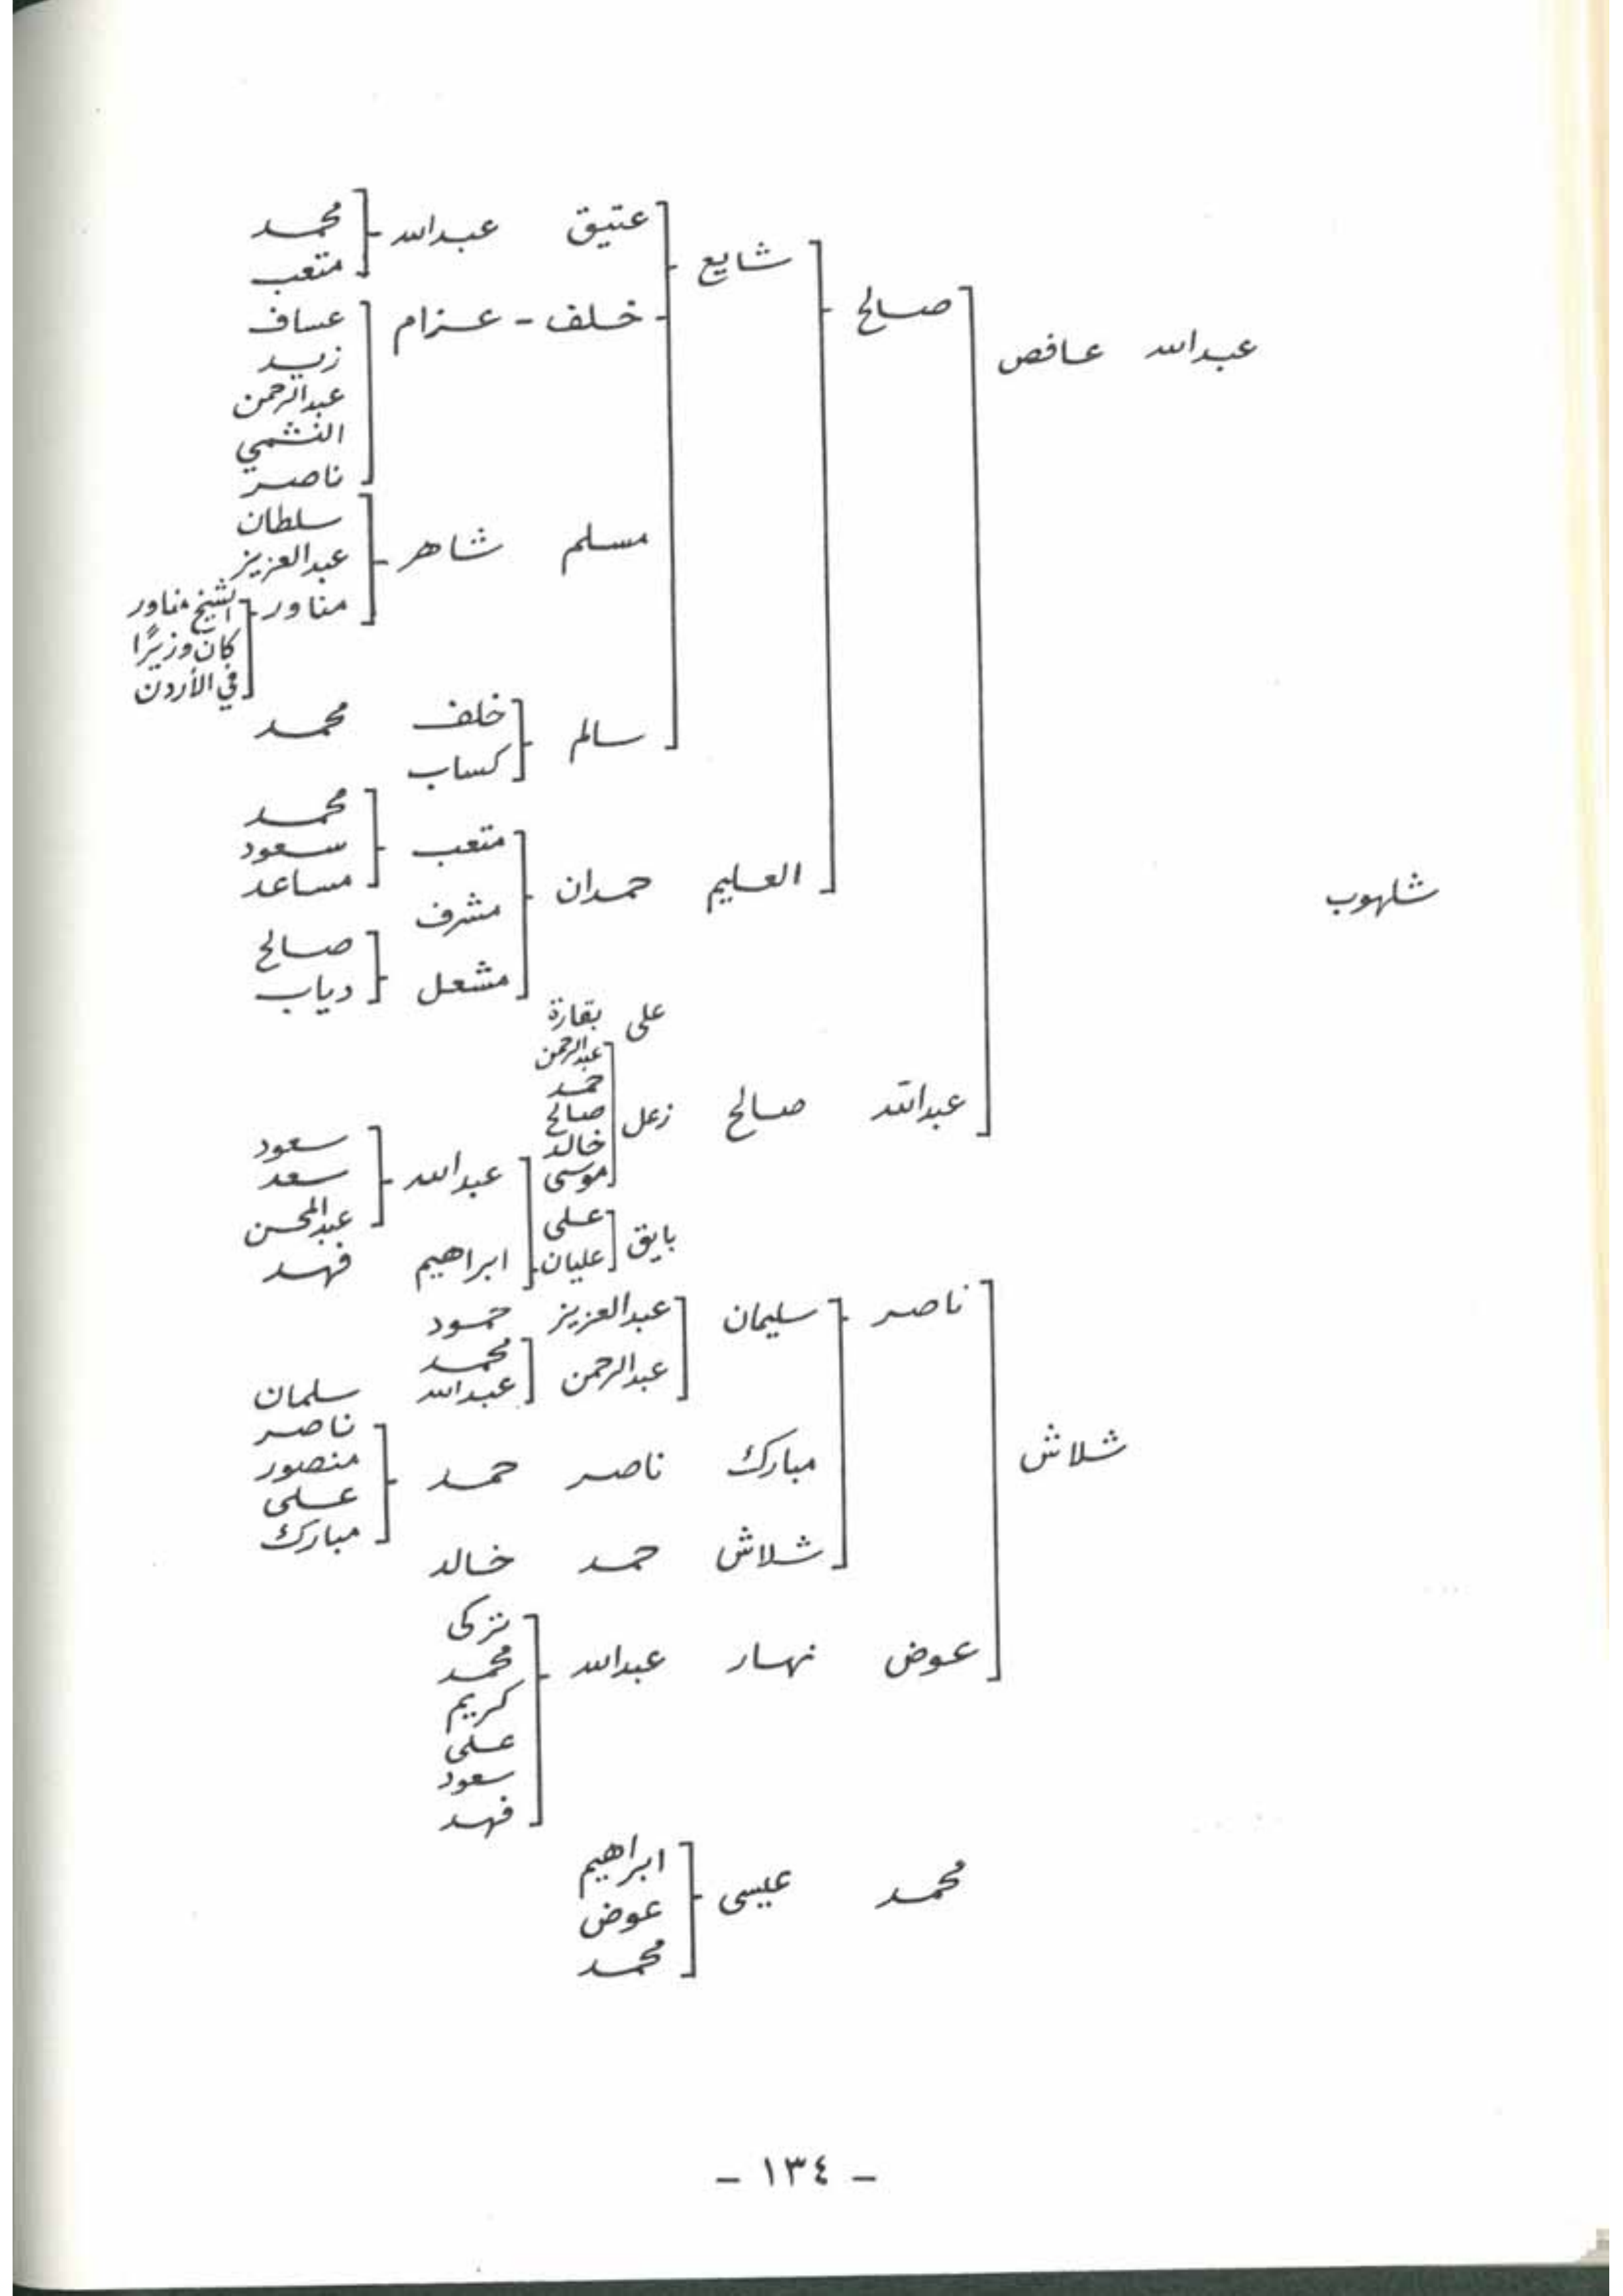 عتيق عبدالله محمد
متعب
شايع
صالح
خلف - عزام عساف
عبدالله عافص
زيد
عبدالرحمن
النشمي
ناصر
مسلم شاهر سلطان
عبدالعزيز
مناور الشيخ مناور
كان وزيرًا
في الأردن
سالم خلف محمد
كساب
شلهوب
العليم حمدان متعب محمد
سعود
مساعد
مشرف
مشعل صالح
دياب
على بقارة
عبدالله صالح زعل عبدالرحمن
حمد
صالح
خالد
موسى
بايق على
عليان
عبدالله سعود
سعد
عبدالمحسن
ابراهيم فهد
شلاش
ناصر سليمان عبدالعزيز حمود
عبدالرحمن محمد
عبدالله سلمان
مبارك ناصر حمد ناصر
منصور
على
مبارك
شلاش حمد خالد
عوض نهار عبدالله تركى
محمد
كريم
على
سعود
فهد
محمد عيسى ابراهيم
عوض
محمد
- ١٣٤ -